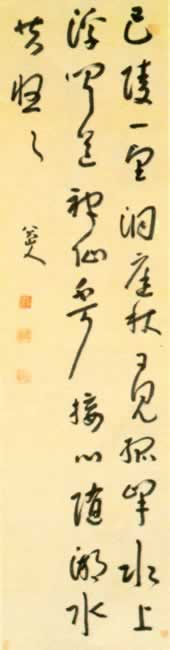 巴陵一望洞庭秋日見孤峯水上
浮聞道神仙不可接心隨湖水
共悠々
八大山人